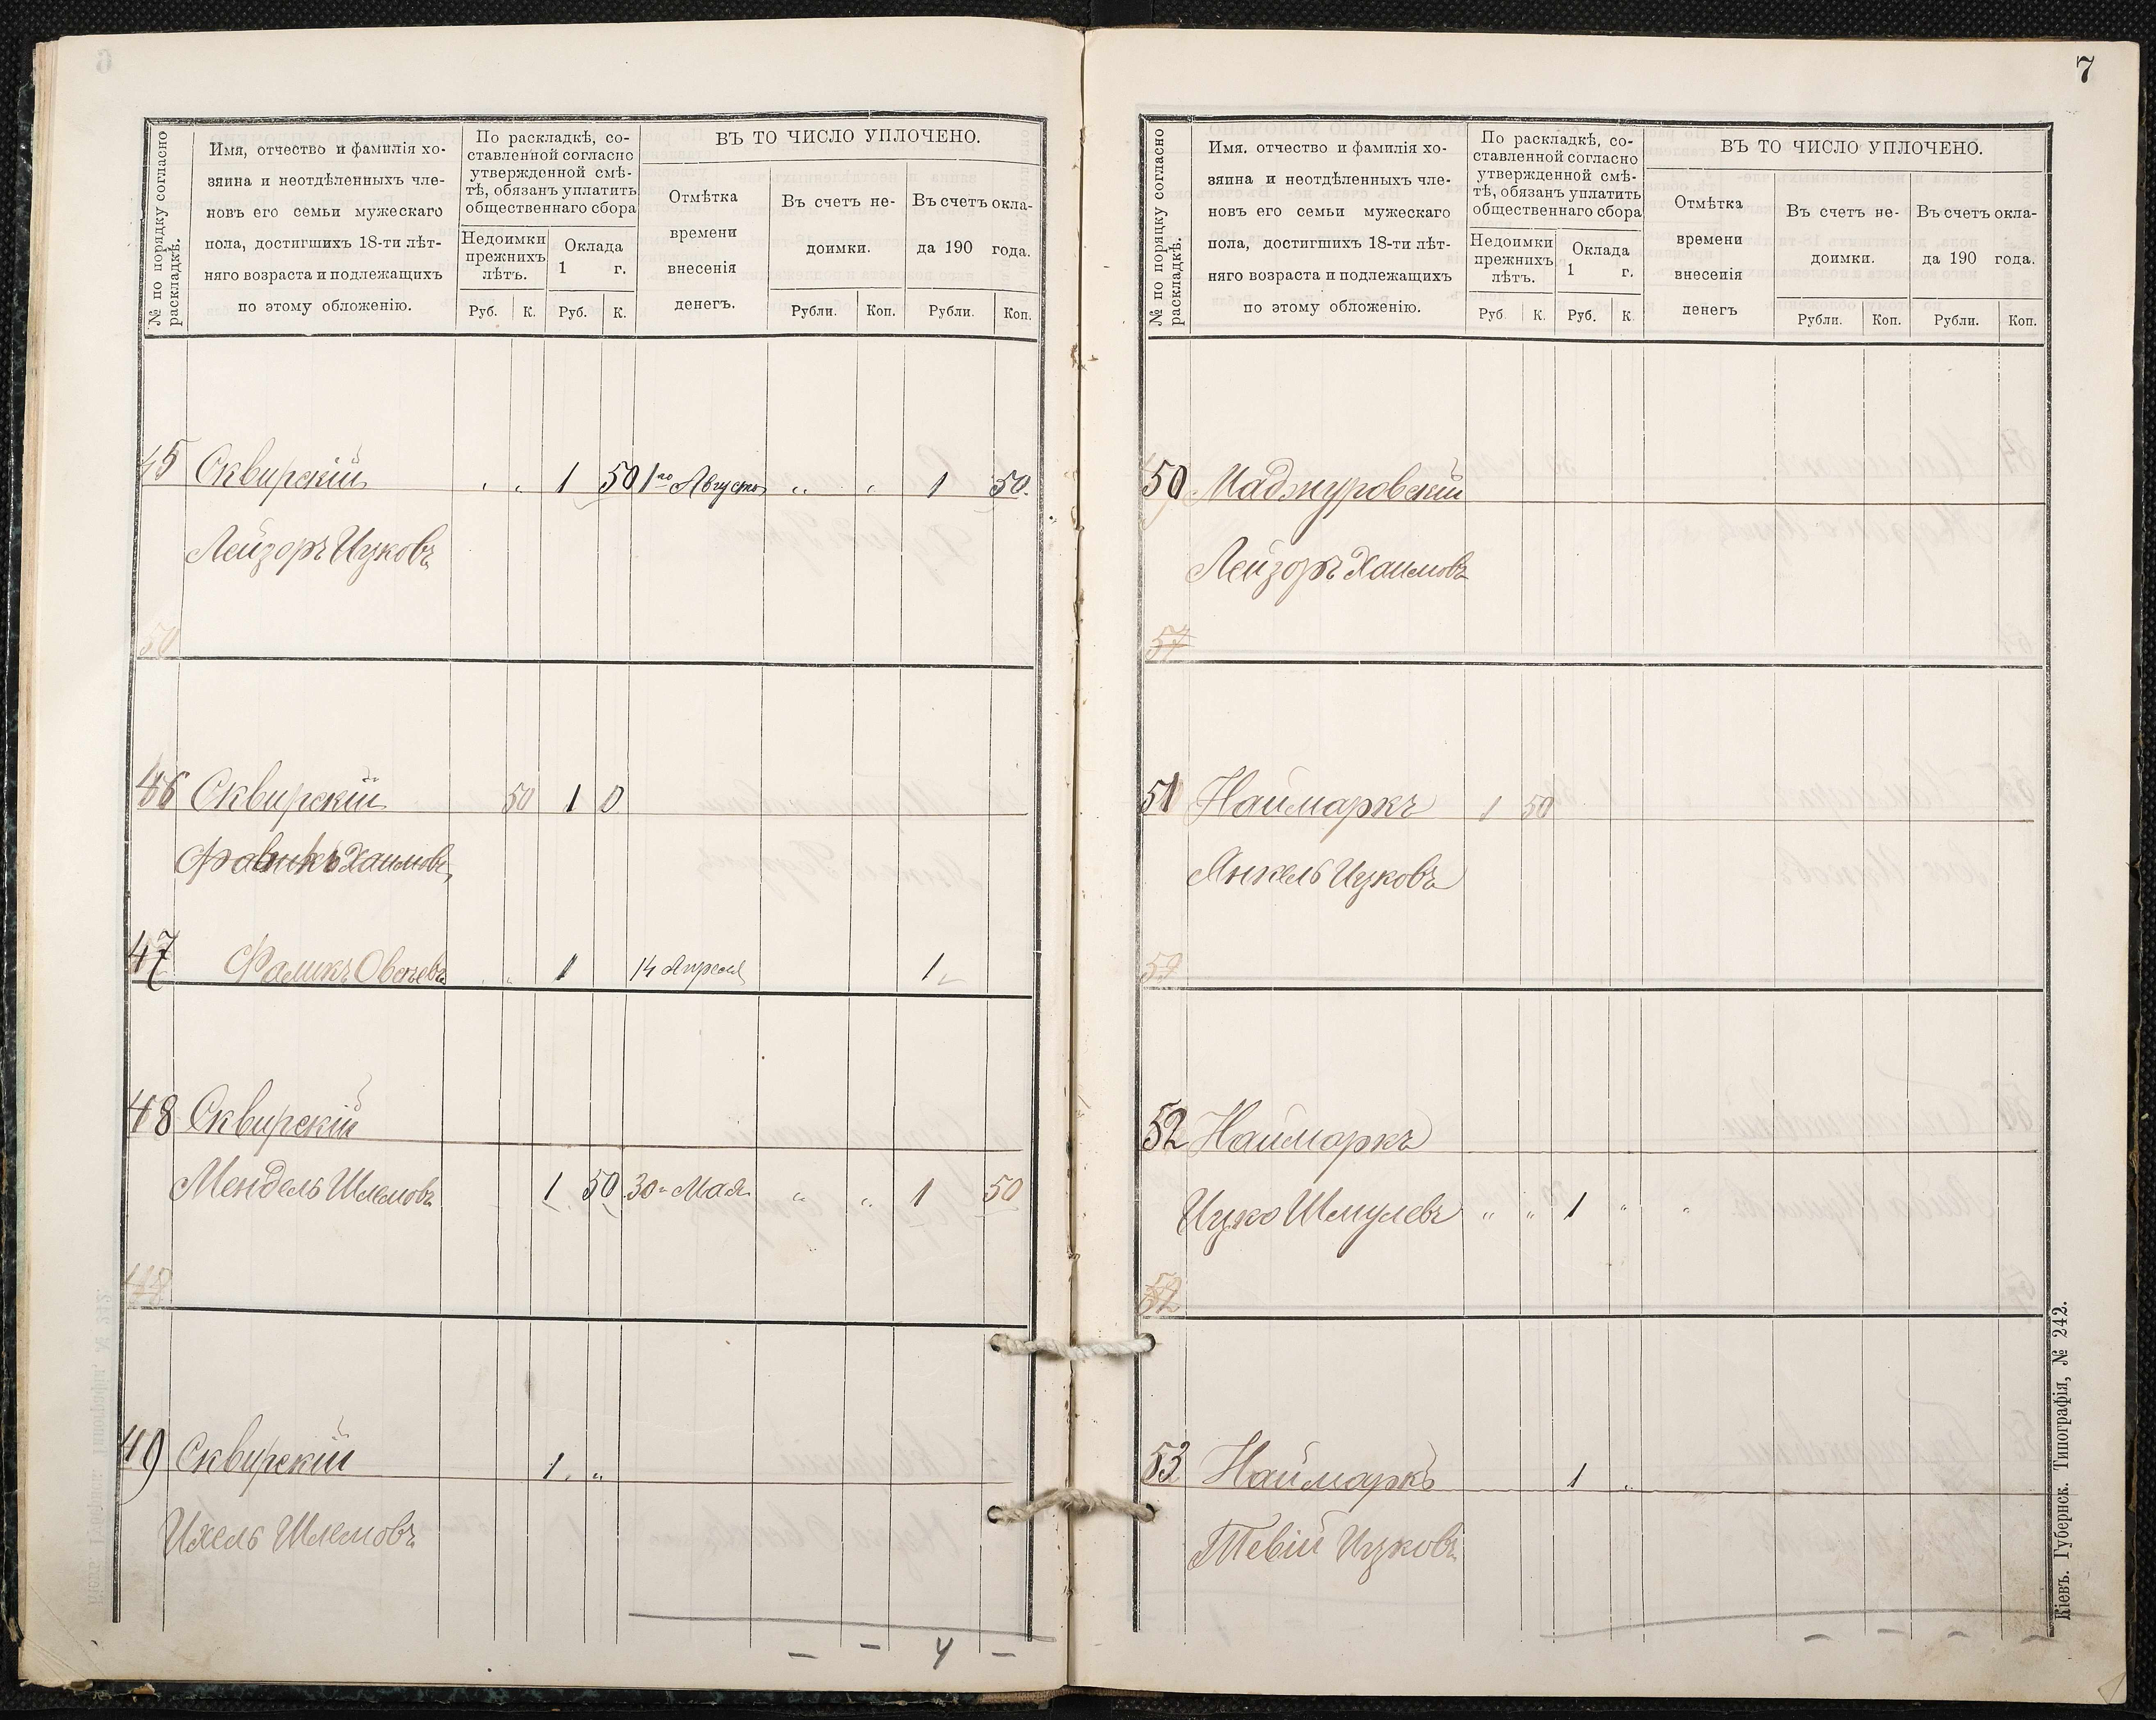 № по порядку согласно
раскладкѣ.
Имя, отчество и фамилія хо-
зяина и неотдѣленныхъ чле-
новъ его семьи мужескаго
пола, достигшихъ 18-ти лѣт-
няго возраста и подлежащихъ
по этому обложенію.
По раскладкѣ, со-
ставленной согласно
утвержденной смѣ-
тѣ, обязанъ уплатить
общественнаго сбора
Недоимки
прежнихъ
лѣтъ.
Оклада
1 г.
Руб. К. Руб. К.
ВЪ ТО ЧИСЛО УПЛОЧЕНО.
Отмѣтка
времени
внесенія
денегъ.
Въ счетъ не-
доимки.
Въ счетъ окла-
да 190 года.
Рубли. Коп. Рубли. Коп.
45 Сквирскій „ „ 1 50 1го Августа „ „ 1 50.
Лейзоръ Ицковъ
50
46 Сквирскій 50 1 0
Хаимовъ
47 Фаликъ Овсѣевъ „ „ 1 14 Апреля 1
48 Сквирскій
Мендель Шлемовъ 1 50 30 Мая „ „ 1 50
48
49 Сквирскій 1 „
Ихель Шлемовъ
– – 4 –
7
№ по порядку согласно
раскладкѣ.
Имя, отчество и фамилія хо-
зяина и неотдѣленныхъ чле-
новъ его семьи мужескаго
пола, достигшихъ 18-ти лѣт-
няго возраста и подлежащихъ
по этому обложенію.
По раскладкѣ, со-
ставленной согласно
утвержденной смѣ-
тѣ, обязанъ уплатить
общественнаго сбора
Недоимки
прежнихъ
лѣтъ.
Оклада
1 г.
Руб. К. Руб. К
ВЪ ТО ЧИСЛО УПЛОЧЕНО.
Отмѣтка
времени
внесенія
денегъ
Въ счетъ не-
доимки.
Въ счетъ окла-
да 190 года.
Рубли. Коп. Рубли. Коп.
50 Маджуровскій
Лейзоръ Хаимовъ
57
51 Наймаркъ 1 50
Янкель Ицковъ
52 Наймаркъ
Ицко Шмулевъ „ „ 1 „ „
52
53 Наймаркъ 1 „
Тевій Ицковъ
– – – –
Кіевъ. Губернск. Типографія, № 242.